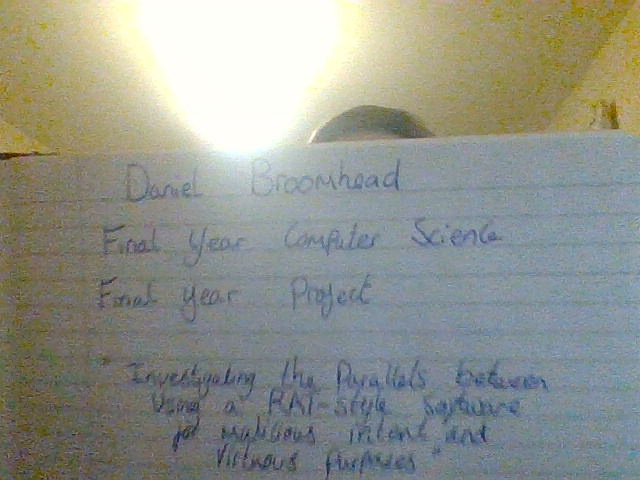 Daniel Broomhead
Final Year Computer Science
Final year Project
"Investigating the Parallels between
Using a RAT-style Software
for malicious intent and
Virtuous purposes"